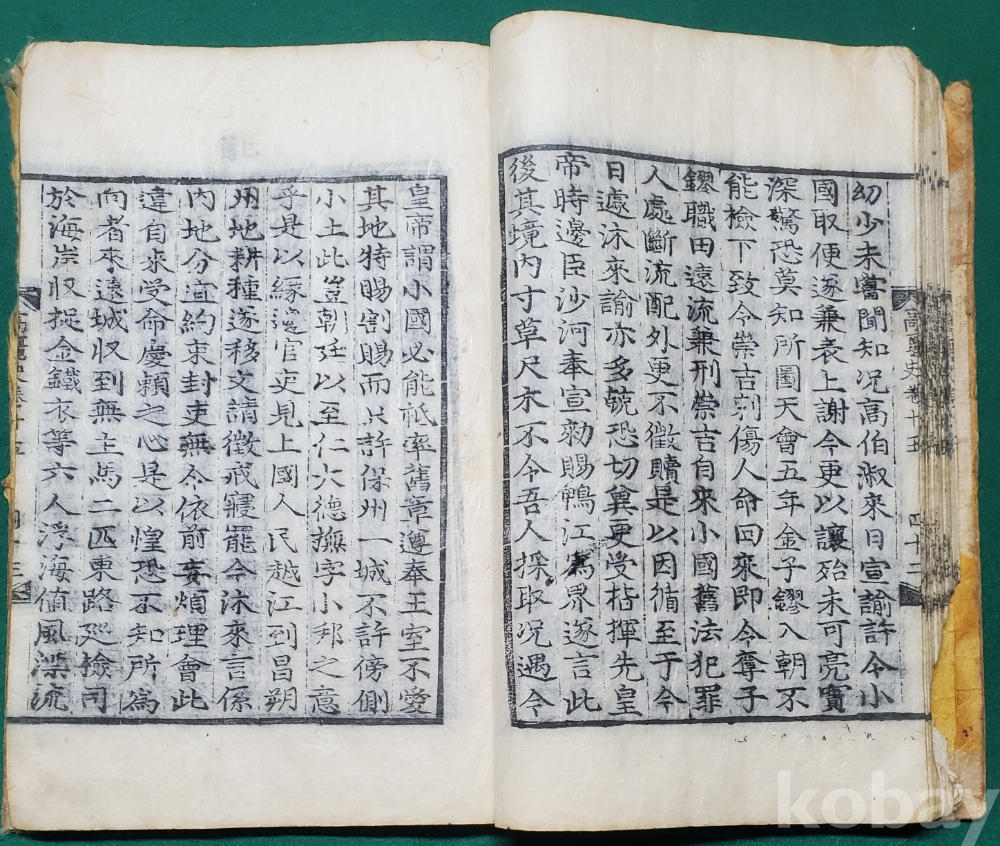 幼少未嘗聞知况高伯淑來日宣諭許令小
國取便遂兼表上謝今更以讓殆未可亮實
深驚恐莫知所圖天會五年金子鏐入朝不
能檢下致令崇吉刻傷人命回來即令奪子
鏐職田遠流兼刑崇吉自來小國舊法犯罪
人處斷流配外更不徵贖是以因循至于今
日遽沐來諭亦多兢恐切冀更受指揮先皇
帝時邊臣沙河奉宣勑賜鴨江爲界遂言此
後其境內寸草尺木不令吾人採取况遇今
高麗史卷十五 四十二
皇帝謂小國必能祗率舊章遵奉王室不愛
其地特賜割賜而只許保州一城不許傍側
小土此豈朝廷以至仁大德撫字小邦之意
乎是以緣邊官吏見上國人民越江到昌朔
州地耕種遂移文請徵戒寢罷今沐來言係
內地分宜約束封吏無令依前妄煩理會此
違自來受命慶賴之心是以惶恐不知所爲
向者來遠城收到無主馬二匹東路廵檢司
於海岸收捉金鐵衣等六人浮海値風漂流
高麗史卷十五 四十三
kobay